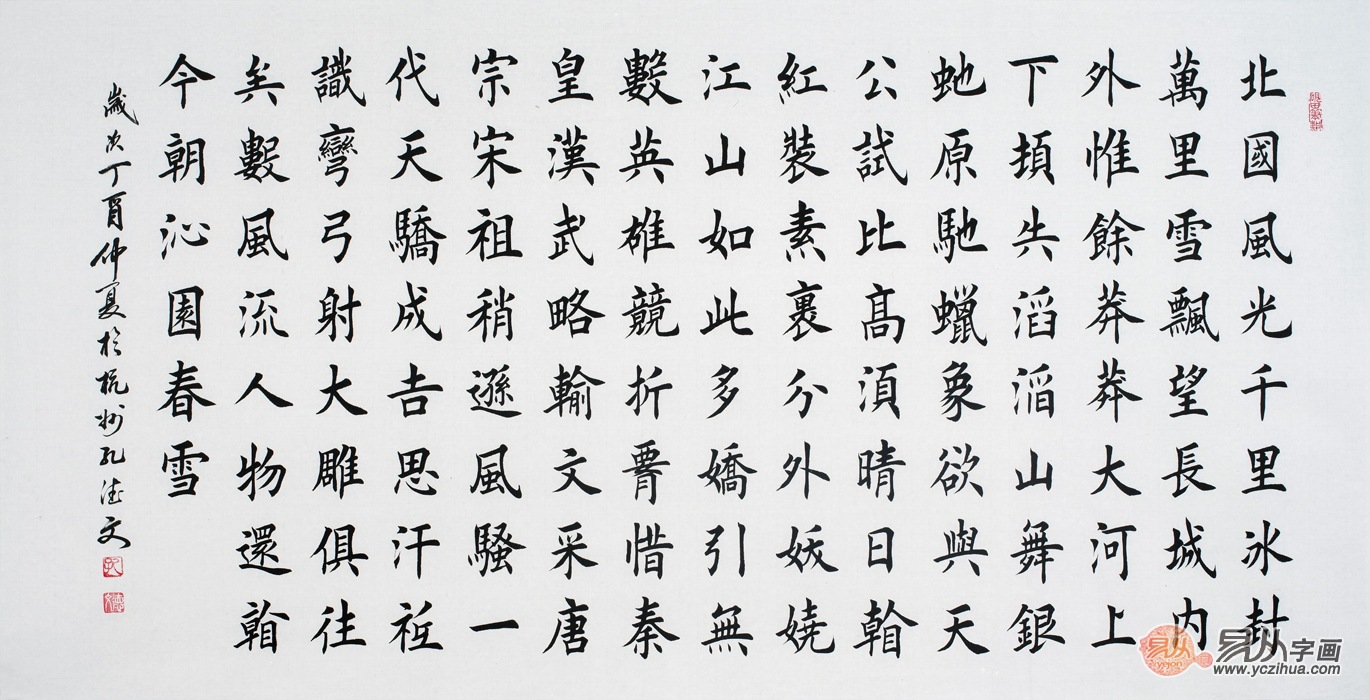 北國風光千里冰封
萬里雪飄望長城内
外惟餘莽莽大河上
下頓失滔滔山舞銀
虵原馳蠟象欲與天
公試比髙須晴日看
紅裝素裹分外妖嬈
江山如此多嬌引無
數英雄競折腰惜秦
皇漢武略輸文采唐
宗宋祖稍遜風騷一
代天驕成吉思汗祗
識彎弓射大雕俱往
矣數風流人物還看
今朝沁園春雪
歲次丁酉仲夏於杭州孔德文
易从字画
www.yczihua.com